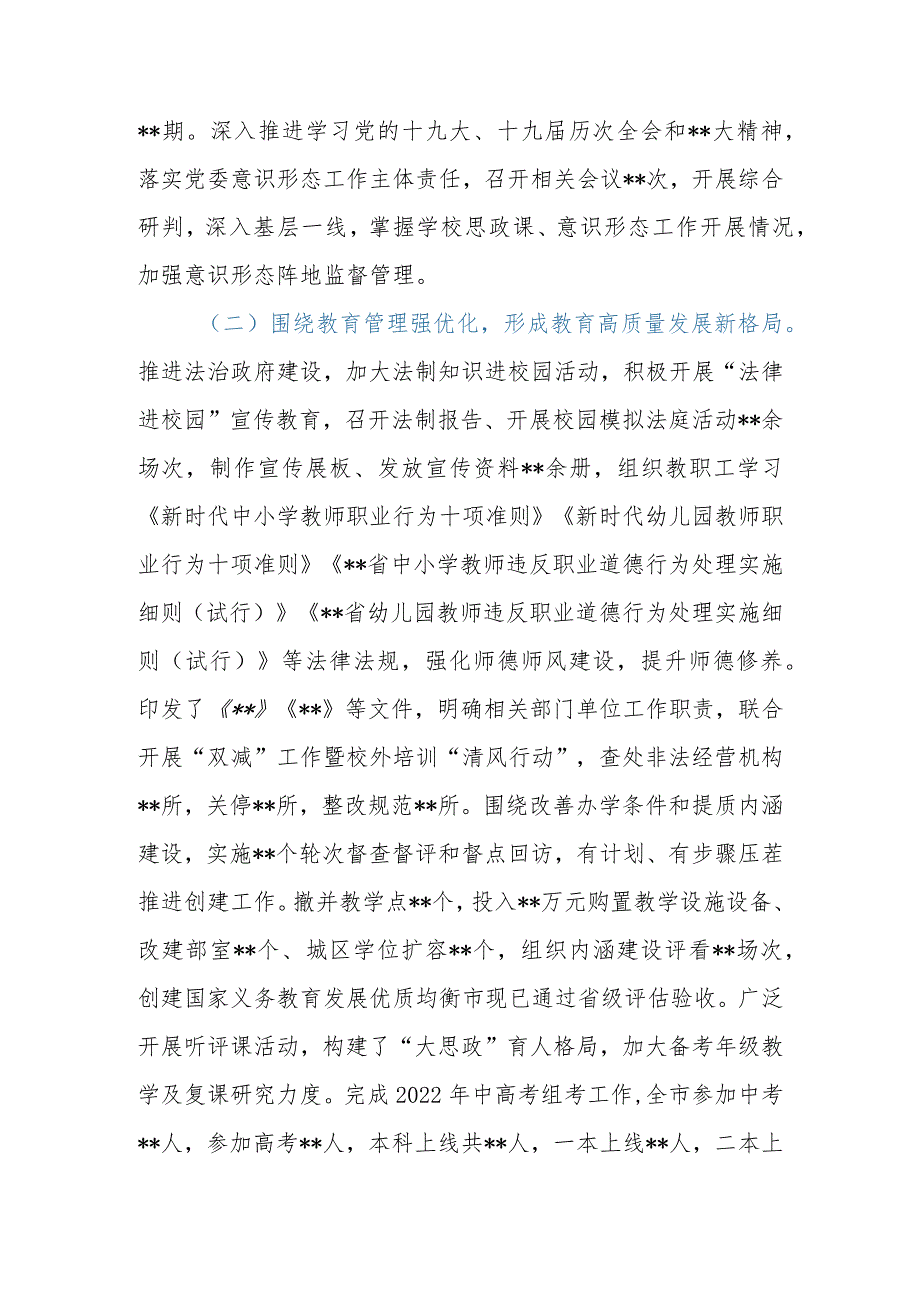 **期。深入推进学习党的十九大、十九届历次全会和**大精神，
落实党委意识形态工作主体责任，召开相关会议**次，开展综合
研判，深入基层一线，掌握学校思政课、意识形态工作开展情况，
加强意识形态阵地监督管理。
（二）围绕教育管理强优化，形成教育高质量发展新格局。
推进法治政府建设，加大法制知识进校园活动，积极开展“法律
进校园”宣传教育，召开法制报告、开展校园模拟法庭活动**余
场次，制作宣传展板、发放宣传资料**余册，组织教职工学习
《新时代中小学教师职业行为十项准则》《新时代幼儿园教师职
业行为十项准则》《**省中小学教师违反职业道德行为处理实施
细则（试行）》《**省幼儿园教师违反职业道德行为处理实施细
则（试行）》等法律法规，强化师德师风建设，提升师德修养。
印发了《**》《**》等文件，明确相关部门单位工作职责，联合
开展“双减”工作暨校外培训“清风行动”，查处非法经营机构
**所，关停**所，整改规范**所。围绕改善办学条件和提质内涵
建设，实施**个轮次督查督评和督点回访，有计划、有步骤压茬
推进创建工作。撤并教学点**个，投入**万元购置教学设施设备、
改建部室**个、城区学位扩容**个，组织内涵建设评看**场次，
创建国家义务教育发展优质均衡市现已通过省级评估验收。广泛
开展听评课活动，构建了“大思政”育人格局，加大备考年级教
学及复课研究力度。完成2022年中高考组考工作,全市参加中考
**人，参加高考**人，本科上线共**人，一本上线**人，二本上